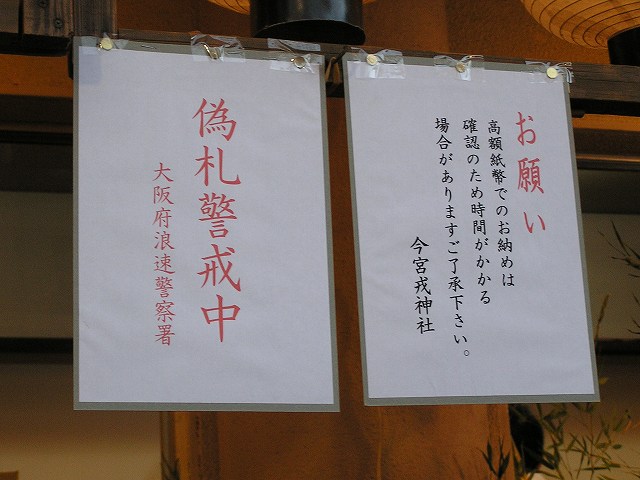 お願い
高額紙幣でのお納めは
確認のため時間がかかる
場合がありますご了承下さい。
今宮戎神社
偽札警戒中
大阪府浪速警察署